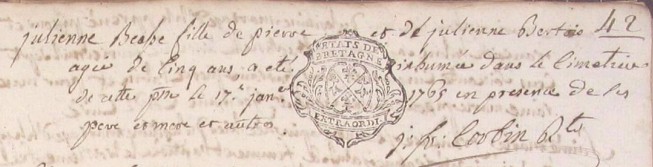 julienne Beshe fille de pierre et de julienne Bertois 42
agée de Cinq ans, a eté inhumée dans le Cimetiere
de cette psse le 17e janer 1765 en presence de ses
pere et mere et autres.
ETATS DE
BRETAGNE
EXTRAORDI